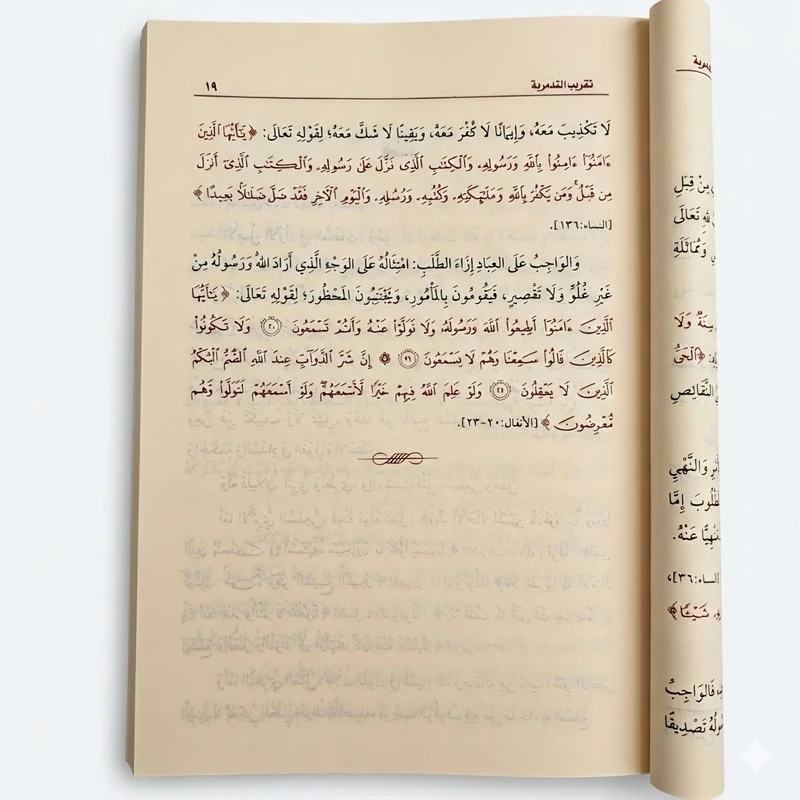 تقريب التدمرية
١٩
لَا تَكْذِيبَ مَعَهُ، وَإِيمَانًا لَا كُفْرَ مَعَهُ، وَيَقِينًا لَا شَكَّ مَعَهُ؛ لِقَوْلِهِ تَعَالَى: ﴿ يَٰٓأَيُّهَا ٱلَّذِينَ
ءَامَنُوٓا۟ ءَامِنُوا۟ بِٱللَّهِ وَرَسُولِهِۦ وَٱلْكِتَٰبِ ٱلَّذِى نَزَّلَ عَلَىٰ رَسُولِهِۦ وَٱلْكِتَٰبِ ٱلَّذِىٓ أَنزَلَ
مِن قَبْلُ ۚ وَمَن يَكْفُرْ بِٱللَّهِ وَمَلَٰٓئِكَتِهِۦ وَكُتُبِهِۦ وَرُسُلِهِۦ وَٱلْيَوْمِ ٱلْءَاخِرِ فَقَدْ ضَلَّ ضَلَٰلًۢا بَعِيدًا ﴾
[النساء:١٣٦].
وَالوَاجِبُ عَلَى العِبَادِ إِزَاءَ الطَّلَبِ: امْتِثَالُهُ عَلَى الوَجْهِ الَّذِي أَرَادَ اللهُ وَرَسُولُهُ مِنْ
غَيْرِ غُلُوٍّ وَلَا تَقْصِيرٍ، فَيَقُومُونَ بِالمَأْمُورِ، وَيَجْتَنِبُونَ المَحْظُورَ؛ لِقَوْلِهِ تَعَالَى: ﴿ يَٰٓأَيُّهَا
ٱلَّذِينَ ءَامَنُوٓا۟ أَطِيعُوا۟ ٱللَّهَ وَرَسُولَهُۥ وَلَا تَوَلَّوْا۟ عَنْهُ وَأَنتُمْ تَسْمَعُونَ ٢٠ وَلَا تَكُونُوا۟
كَٱلَّذِينَ قَالُوا۟ سَمِعْنَا وَهُمْ لَا يَسْمَعُونَ ٢١ ۞ إِنَّ شَرَّ ٱلدَّوَآبِّ عِندَ ٱللَّهِ ٱلصُّمُّ ٱلْبُكْمُ
ٱلَّذِينَ لَا يَعْقِلُونَ ٢٢ وَلَوْ عَلِمَ ٱللَّهُ فِيهِمْ خَيْرًا لَّأَسْمَعَهُمْ ۖ وَلَوْ أَسْمَعَهُمْ لَتَوَلَّوا۟ وَّهُم
مُّعْرِضُونَ ﴾ [الأنفال:٢٠-٢٣].
مِنْ قِبَلِ
للهِ تَعَالَى
وَمُمَاثَلَةِ
سِنَةٌ وَلَا
﴿الْحَيُّ
النَّقَائِصِ
وَالنَّهْيِ
إِمَّا
عَنْهُ.
٣٦]،
شَيْـًٔا﴾
فَالوَاجِبُ
تَصْدِيقًا